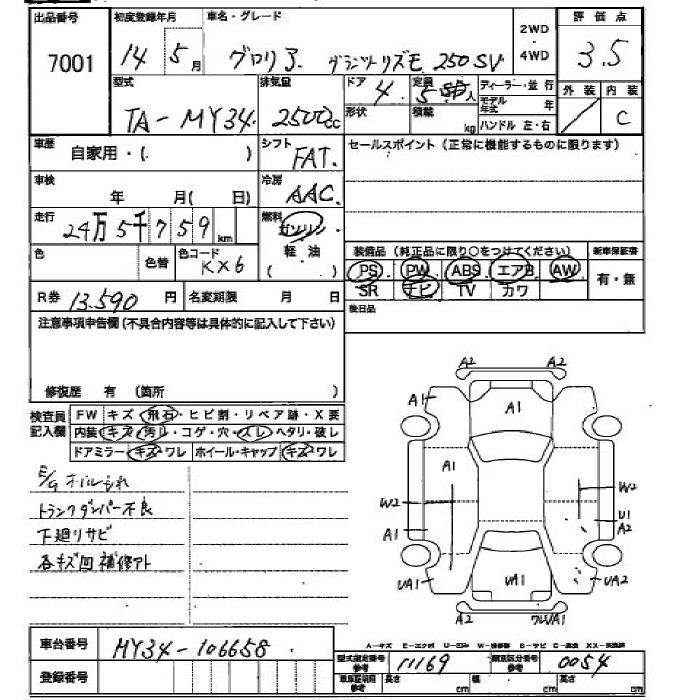 出品番号 初度登録年月 車名・グレード 評価点
7001 14 5月 グロリア グランツーリズモ 250SV 2WD・4WD 3.5
型式 排気量 ドア 4 定員 5 人 ディーラー・並行 外装 内装
TA-MY34 2500cc 形状 積載 kg モデル年式 年 ハンドル 左・右 C
車歴 自家用・( ) シフト FAT. セールスポイント(正常に機能するものに限ります)
車検 年 月( 日) 冷房 AAC.
走行 24万5千759km 燃料 ガソリン 軽・油 ( )
装備品(純正品に限り○をつけてください) 新車保証書
色 色替 色コード KX6 PS PW ABS エアB AW 有・無
SR ナビ TV カワ
R券 13.590円 名変期限 月 日 後日品
注意事項申告欄(不具合内容等は具体的に記入して下さい)
修復歴 有 (箇所 )
検査員記入欄 FW キズ・飛石・ヒビ割・リペア跡・X要
内装 キズ・汚レ・コゲ・穴・スレ・ヘタリ・破レ
ドアミラー キズ・ワレ ホイール・キャップ キズ・ワレ
E/Gオイルもれ
トランクダンパー不良
下廻リサビ
各キズ凹補修アト
A2 A2
A1 A1
A1
W2 W2
A1 U1
A2
UA1 UA1 UA2
A2 ワレUA1
車台番号 MY34-106658
登録番号
型式指定番号 参考 11169 類別区分番号 参考 0054
長さ cm 幅 cm 高さ cm